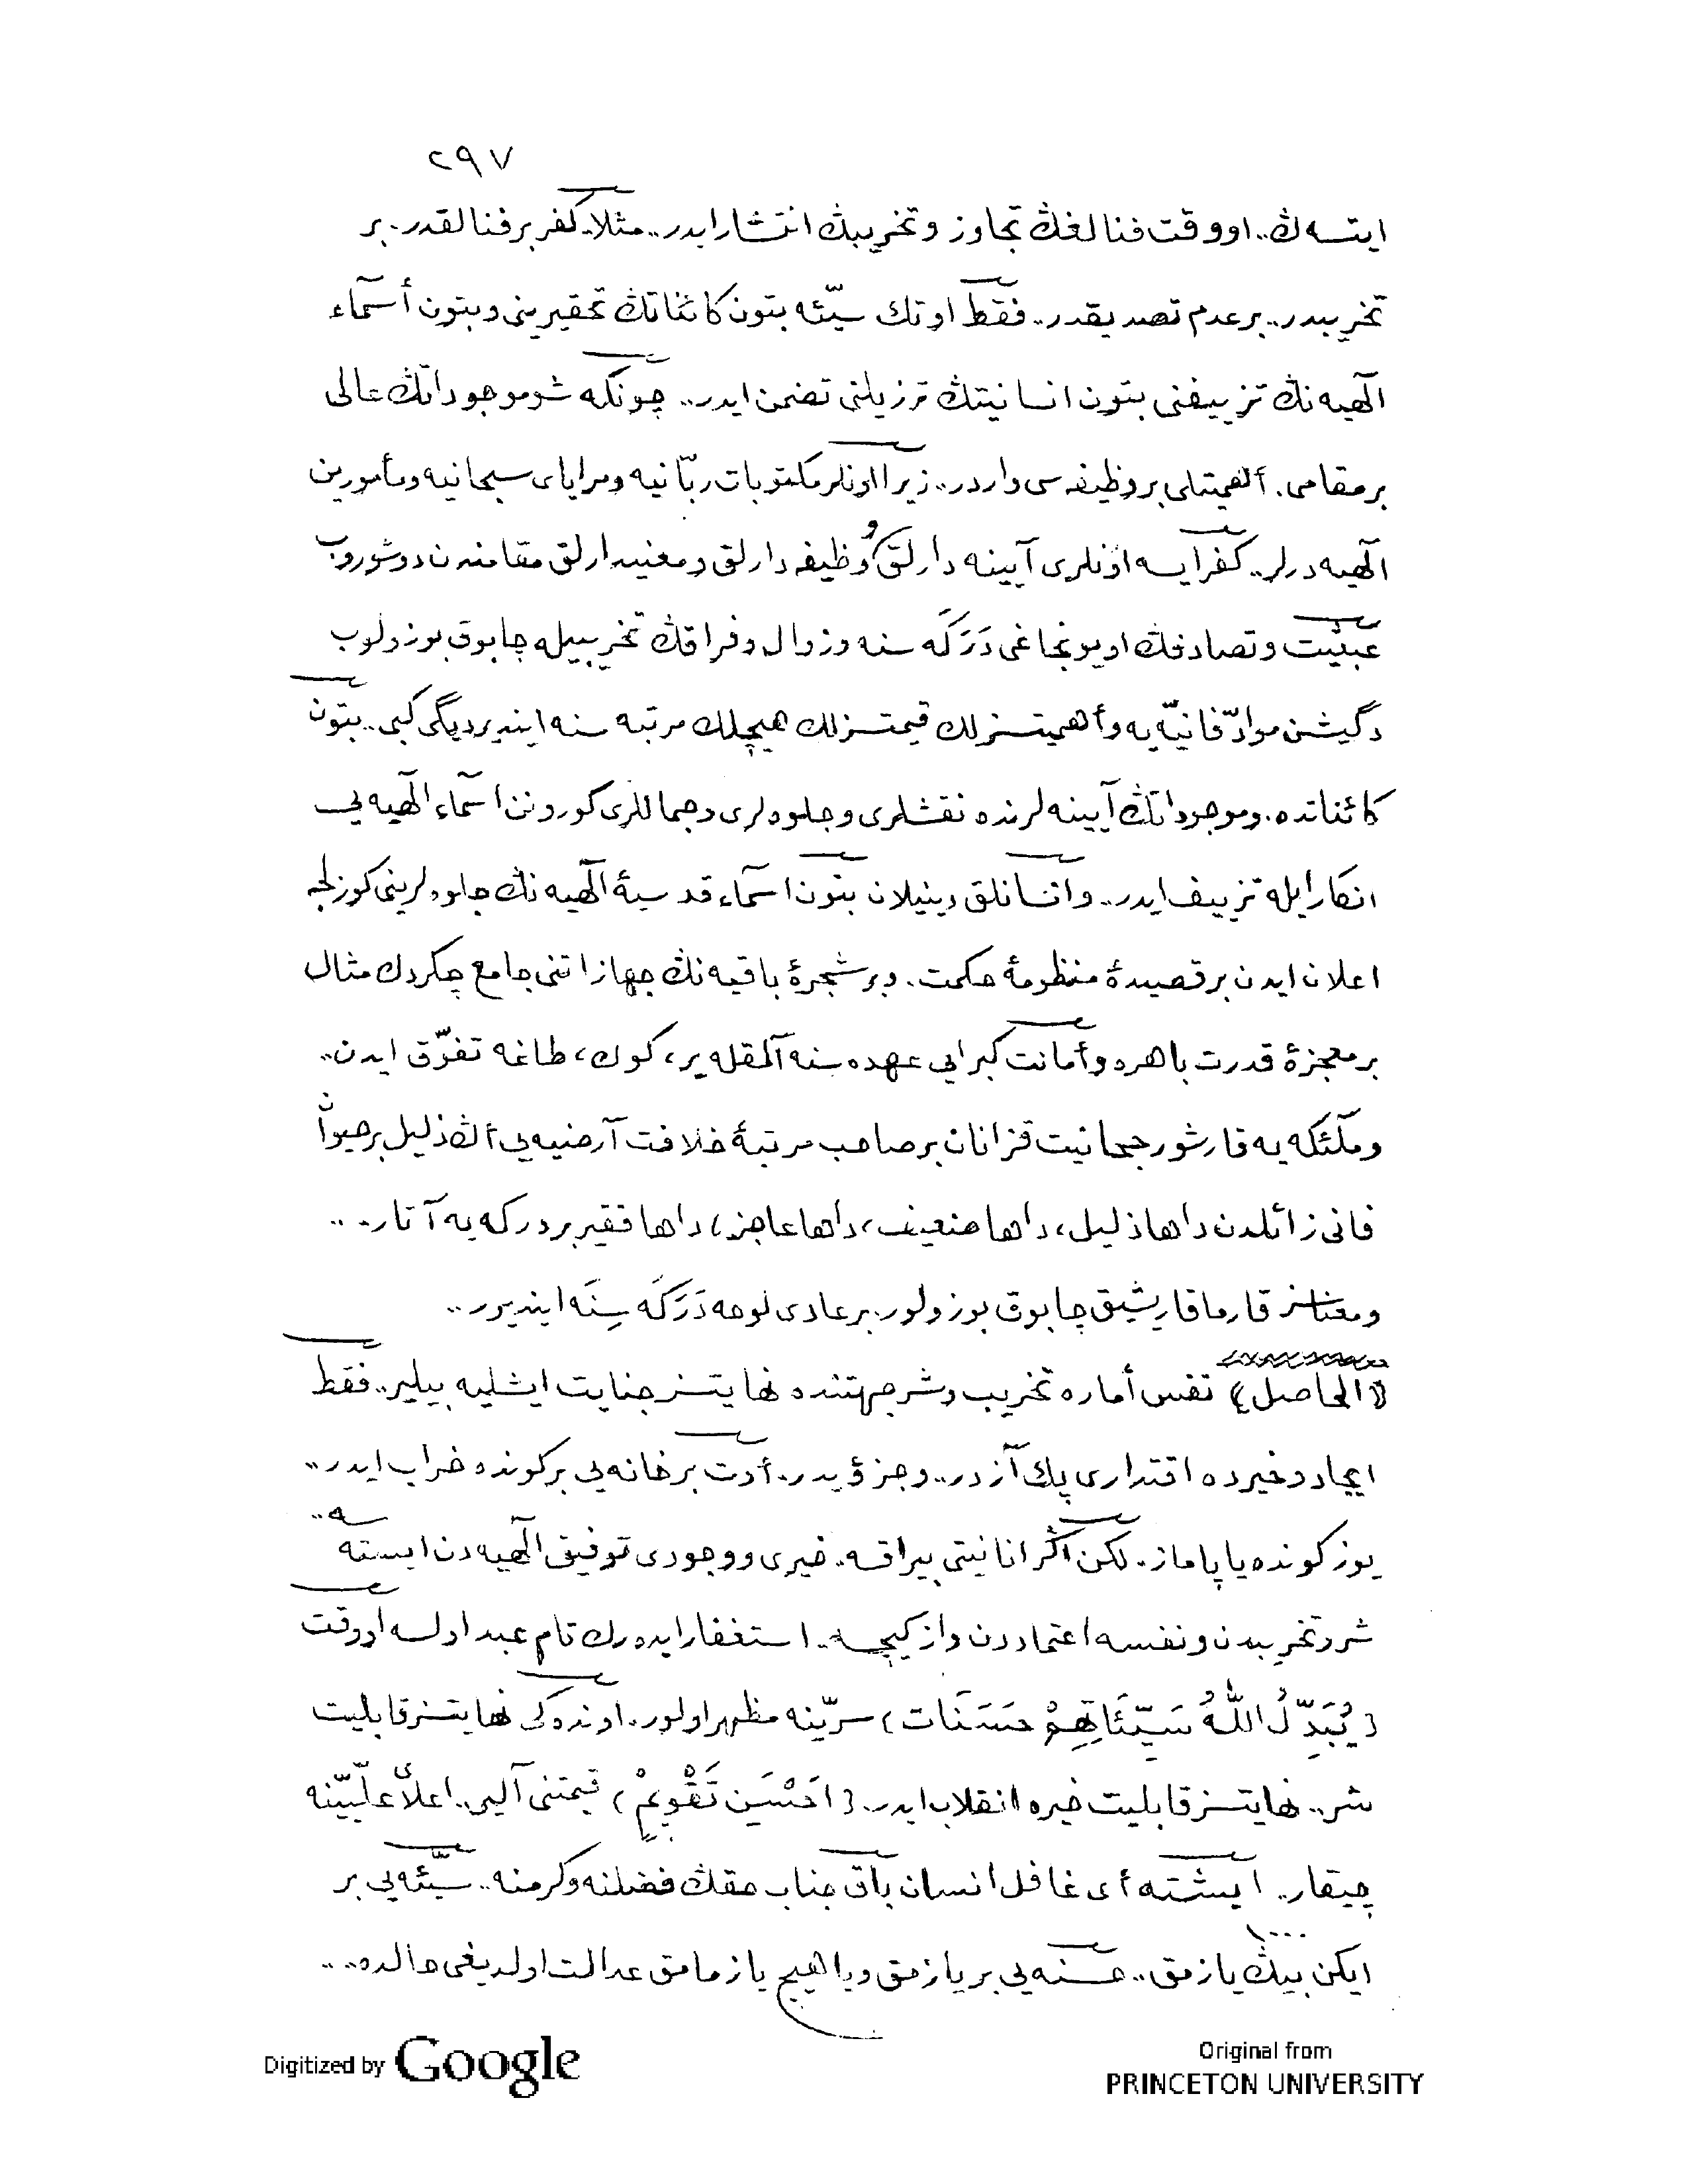 ٢٩٧
ايتسه‌ڭ.. او وقت فنالغڭ تجاوز و تخريبڭ انتشار ايدر.. مثلا كفر بر فنالقدر. بر
تخريبدر.. بر عدم تصديقدر.. فقط او تك سيّئه بتون كائناتڭ تحقيرينى و بتون أسمآء
الٓهيه نڭ تزييفنى بتون انسانيتڭ ترزيلنى تضمن ايدر.. چونكه شو موجوداتڭ عالى
بر مقامى. أهميتلى بر وظيفه سى واردر.. زيرا اونلر مكتوبات ربّانيه و مراياى سبحانيه و مأمورين
الٓهيه درلر.. كفر ايسه اونلرى آيينه دارلق و وظيفه دارلق و معنيدارلق مقامندن دوشوروب
عبثيت و تصادفڭ اويونجاغى دَرَكَه سنه و زوال و فراقڭ تخريبيله چابوق بوزولوب
دگيشن موادّ فانيّه يه و أهميتسزلك قيمتسزلك هيچلك مرتبه سنه اينديرديگى كبى.. بتون
كائناتده. و موجوداتڭ آيينه لرنده نقشلرى و جلوه لرى و جماللرى كورونن اسمآء الٓهيه يى
انكار ايله تزييف ايدر.. و انسانلق دينيلان بتون اسمآء قدسيهٔ الٓهيه نڭ جلوه لرينى كوزلجه
اعلان ايدن بر قصيدهٔ منظومهٔ حكمت. و بر شجرهٔ باقيه نڭ جهازاتنى جامع چكردك مثال
بر معجزهٔ قدرت باهره و أمانت كبرايى عهده سنه آلمقله ير، كوك، طاغه تفوّق ايدن..
و ملٓئكه يه قارشو رجحانيت قزانان بر صاحب مرتبهٔ خلافت آرضيه يى أڭ ذليل بر حيوان
فانى زائلدن داها ذليل، داها ضعيف، داها عاجز، داها فقير بر دركه يه آتار...
و معناسز قارما قاريشيق چابوق بوزولور بر عادى لوحه دَرَكَه سِنَه اينديرر..
﴿الحاصل﴾ نفس أماره تخريب و شر جهتنده نهايتسز جنايت ايشليه بيلير.. فقط
ايجاد و خيرده اقتدارى پك آزدر.. و جزؤيدر. أوت بر خانه يى بر كونده خراب ايدر..
يوز كونده ياپاماز. لكن اگر انانيتى بيراقسه. خيرى و وجودى توفيق الٓهيه دن ايسته سه..
شر و تخريبدن و نفسه اعتماددن واز كيچسه. استغفار ايده رك تام عبد اولسه او وقت
﴿يُبَدِّلُ اللّٰهُ سَيِّئَاتِهِمْ حَسَنَات﴾ سرّينه مظهر اولور. اونده كى نهايتسز قابليت
شر.. نهايتسز قابليت خيره انقلاب ايدر. ﴿اَحْسَنِ تَقْوِيمْ﴾ قيمتنى آلير.. اعلاّى علّيّينه
چيقار.. ايشته أى غافل انسان باق جناب حقڭ فضلنه و كرمنه.. سيّئه يى بر
ايكن بيڭ ١٠٠٠ يازمق.. حسنه يى بر يازمق ويا هيچ يازمامق عدالت اولديغى حالده...
Digitized by Google
Original from
PRINCETON UNIVERSITY